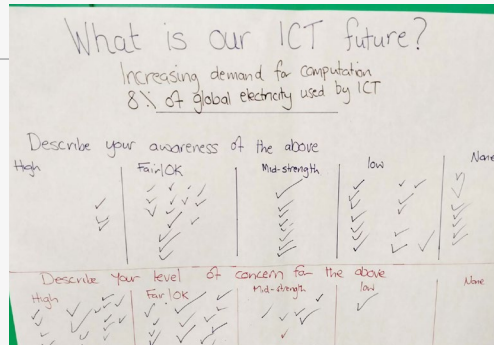 What is our ICT future?
Increasing demand for computation
8% of global electricity used by ICT
Describe your awareness of the above
High Fair/OK Mid-strength low None
Describe your level of concern for the above
High Fair/OK Mid-strength low None